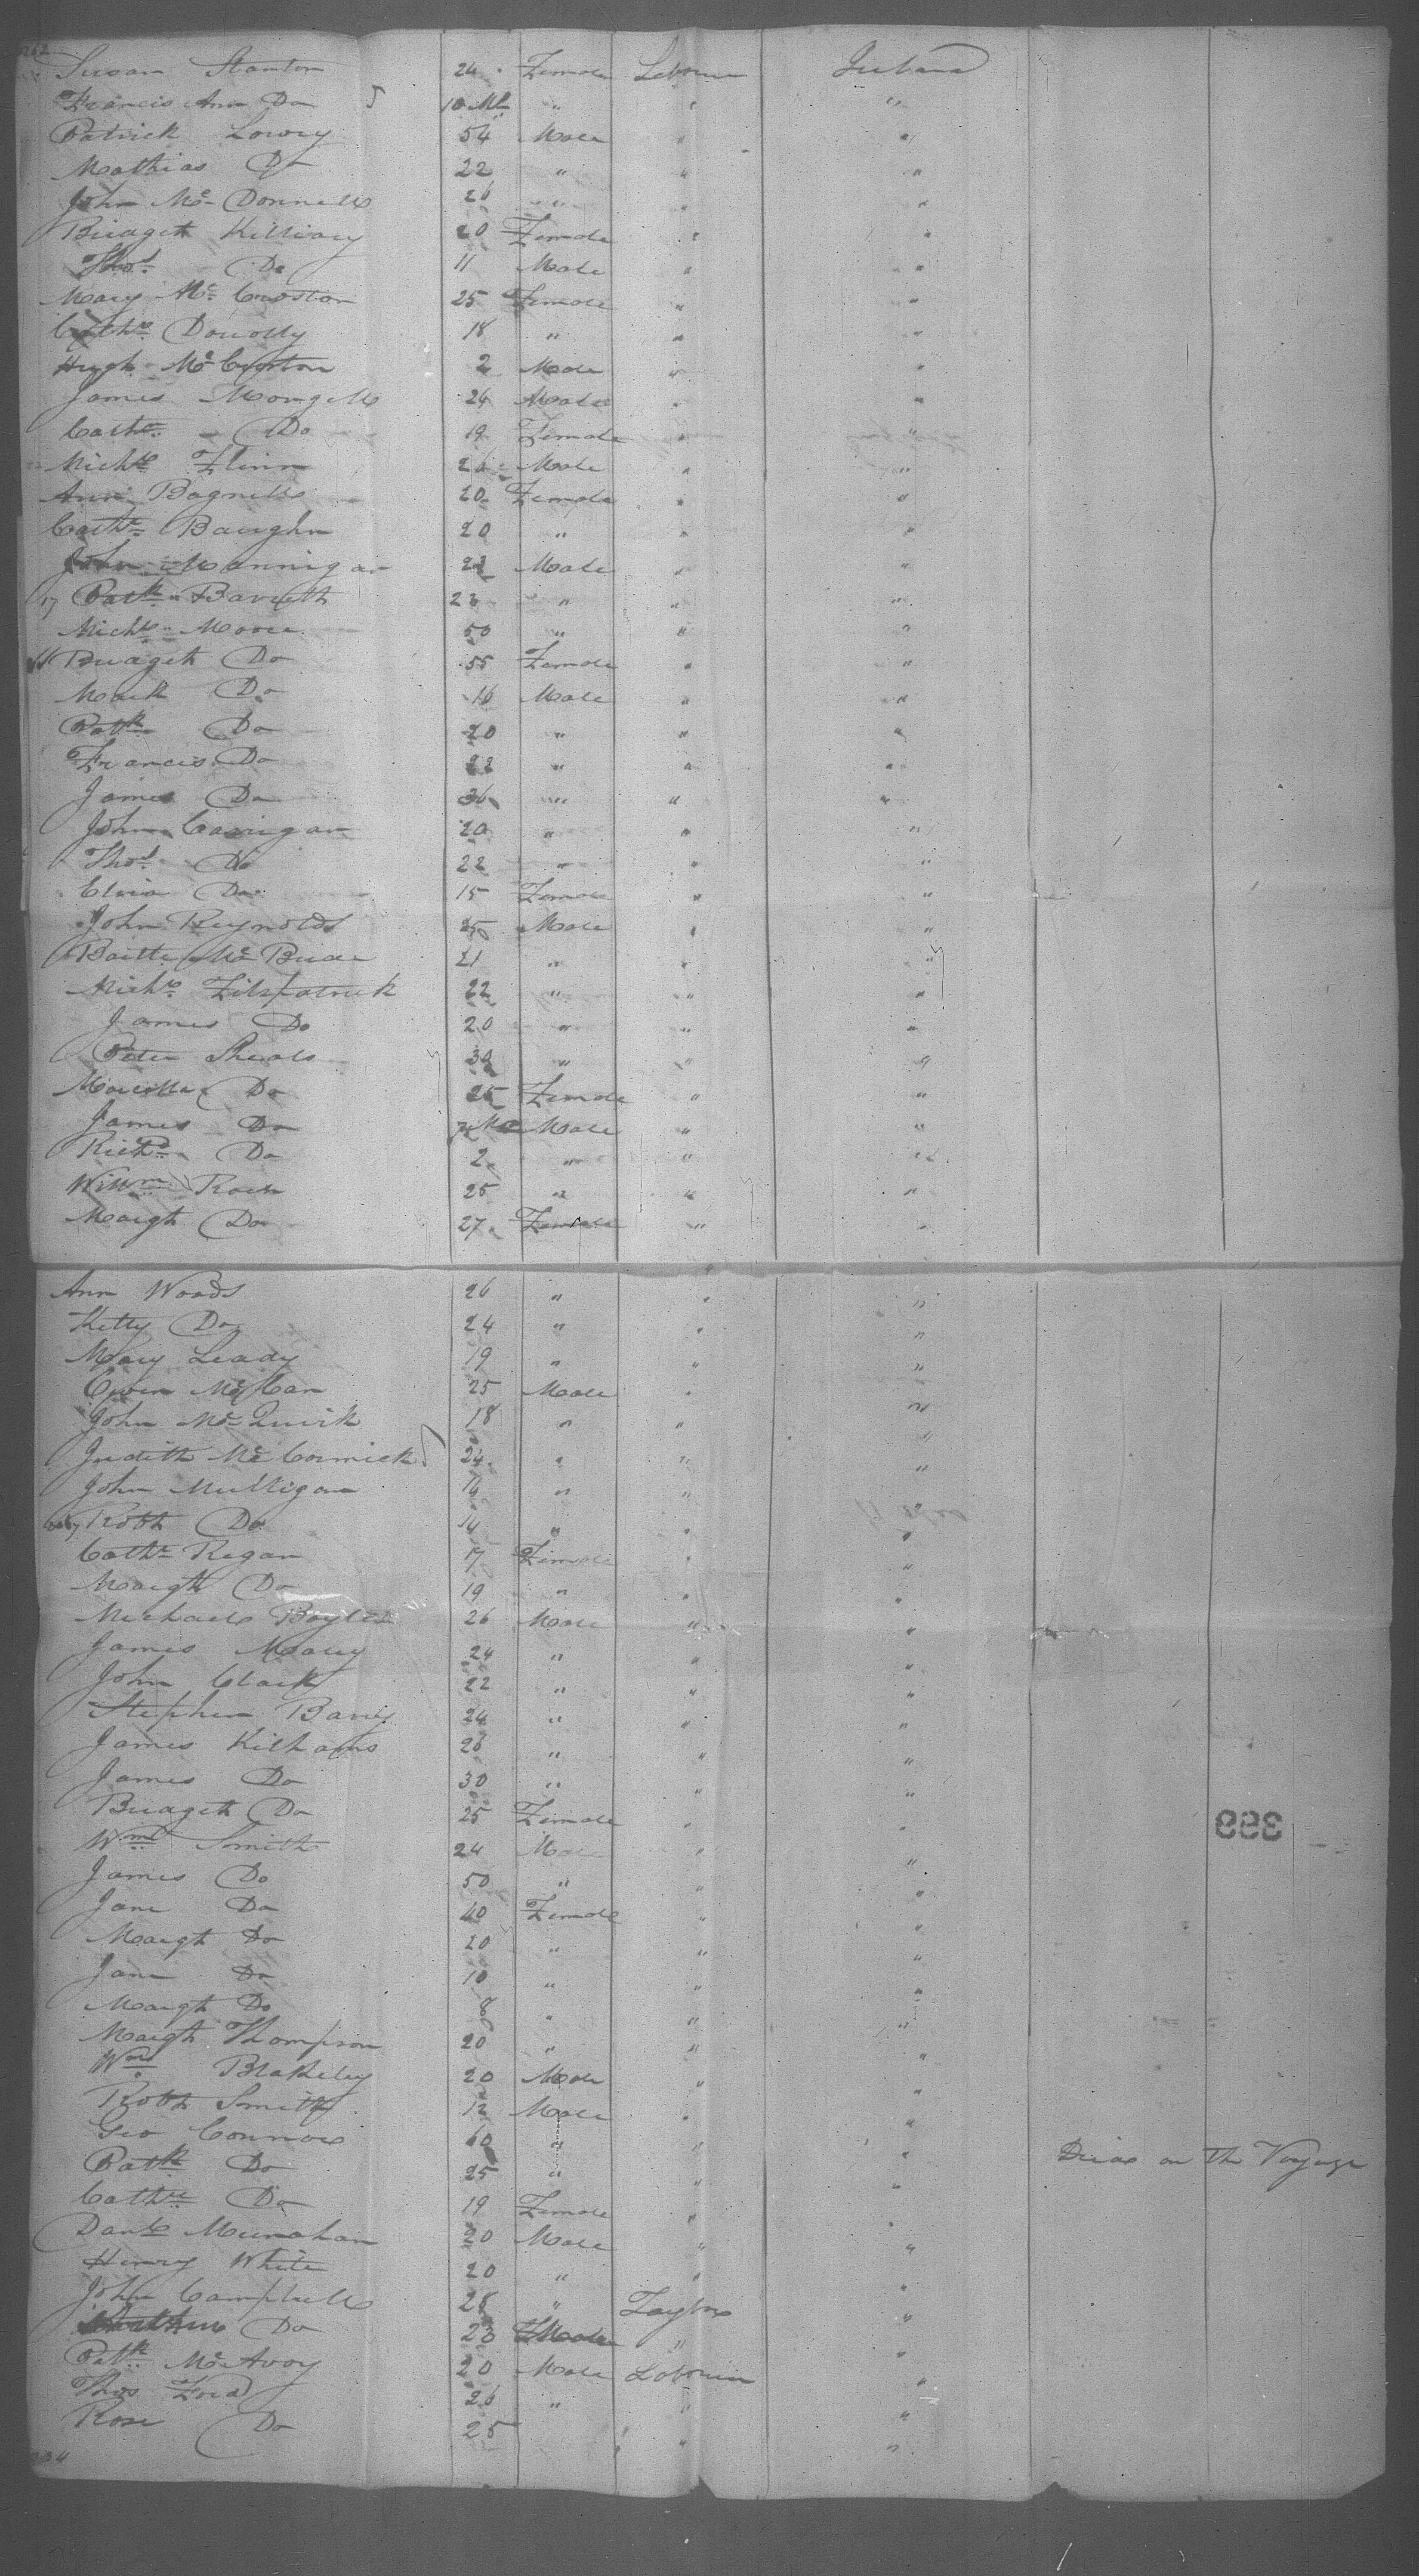 262
Susan Stanton 24 Female Laborer Ireland
Francis Ann Do 10 Ms " " "
Patrick Lowry 54 Male " "
Mathias Do 22 " " "
John Mc Donnell 26 " " "
Bridget Killiary 20 Female " "
Thos Do 11 Male " "
Mary Mc Croston 25 Female " "
Cathe Donolly 18 " " "
Hugh Mc Croston 2 Male " "
James Mongell 24 Male " "
Cathe Do 19 Female " "
Michl Flinn 26 Male " "
Ann Bagnell 20 Female " "
Cathe Baughn 20 " " "
John Mannigan 23 Male " "
17 Patk Barrett 23 " " "
Michl Moore 50 " " "
Bridget Do 55 Female " "
Mark Do 16 Male " "
Patk Do 20 " " "
Francis Do 22 " " "
James Do 36 " " "
John Carrigan 20 " " "
Thos Do 22 " " "
Eliza Do 15 Female " "
John Reynolds 25 Male " "
Mc Bride 21 " " "
Michl Fitzpatrick 22 " " "
James Do 20 " " "
Peter Sheals 30 " " "
Do 25 Female " "
James Do 7 Mo Male " "
Richd Do 2 " " "
Willm Roch 25 " " "
Margt Do 27 Female " "
Ann Woods 26 " " "
Kitty Do 24 " " "
Mary Leady 19 " " "
Owen Mc Can 25 Male " "
John Mc Quirk 18 " " "
Judith Mc Cormick 24 " " "
John Mulligan 16 " " "
Robt Do 14 " " "
Cathe Regan 17 Female " "
Margt Do 19 " " "
Michael Boylan 26 Male " "
James Macey 24 " " "
John Clark 22 " " "
Stephen Barry 24 " " "
James Kilhams 26 " " "
James Do 30 " " "
Bridget Do 25 Female " "
399
Wm Smith 24 Male " "
James Do 50 " " "
Jane Do 40 Female " "
Margt Do 20 " " "
Jane Do 10 " " "
Margt Do 8 " " "
Margt Thompson 20 " " "
Wm Blakeley 20 Male " "
Robt Smith 12 Male " "
Geo Connor 60 " " " Died on the Voyage
Patk Do 25 " " "
Cathe Do 19 Female " "
Danl Munahan 20 Male " "
Henry White 20 " " "
John Campbell 28 " Taylor "
Do 23 " "
Patk Mc Avoy 20 Male Laborer "
Thos Ford 26 " " "
Rose Do 25 " "